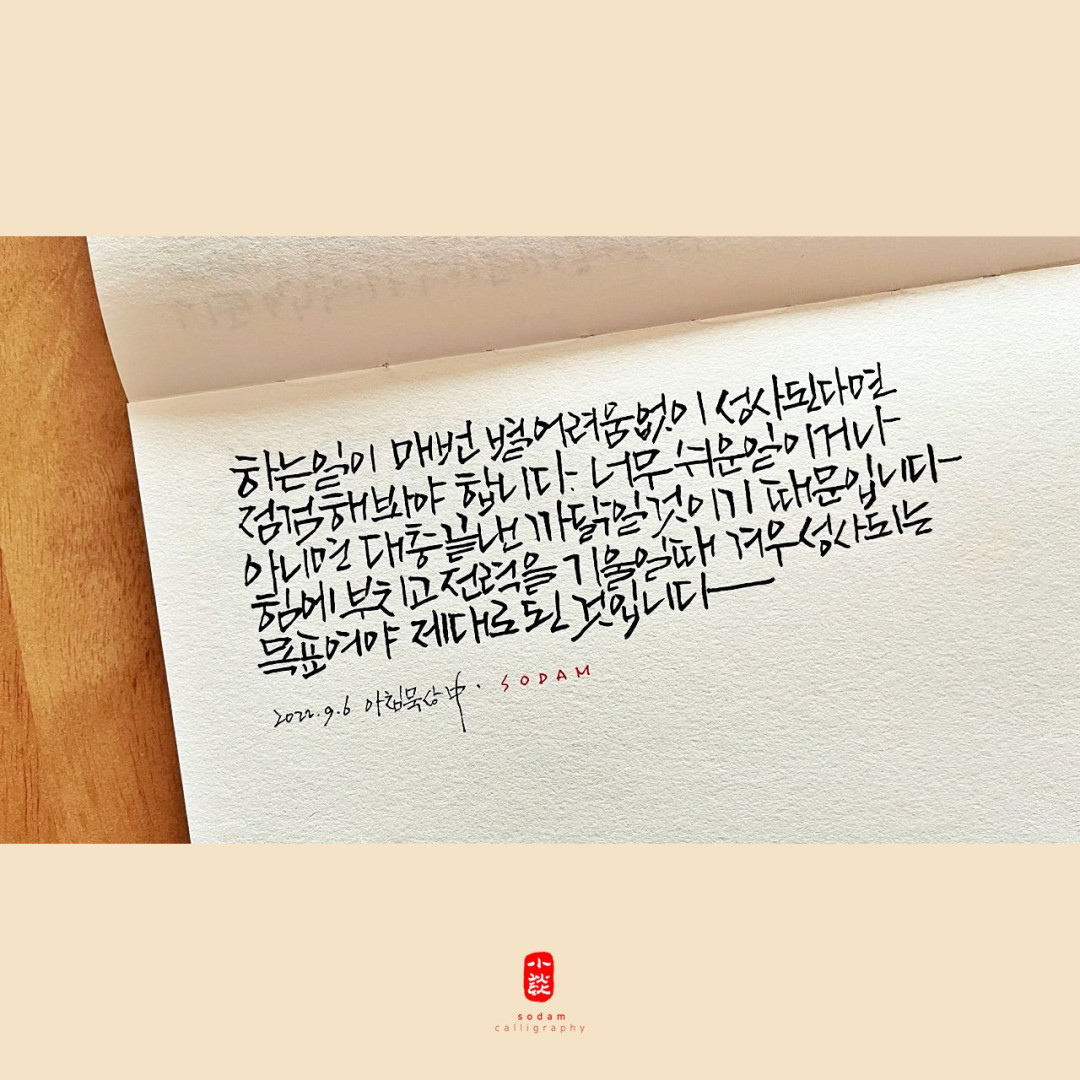 하는일이 매번 별어려움없이 성사된다면
점검해봐야 합니다. 너무 쉬운일이거나
아니면 대충끝낸 까닭일것이기 때문입니다
힘에 부치고 전력을 기울일때 겨우 성사되는
목표여야 제대로 된 것입니다
2022.9.6 아침묵상中. SODAM
小談
sodam
calligraphy